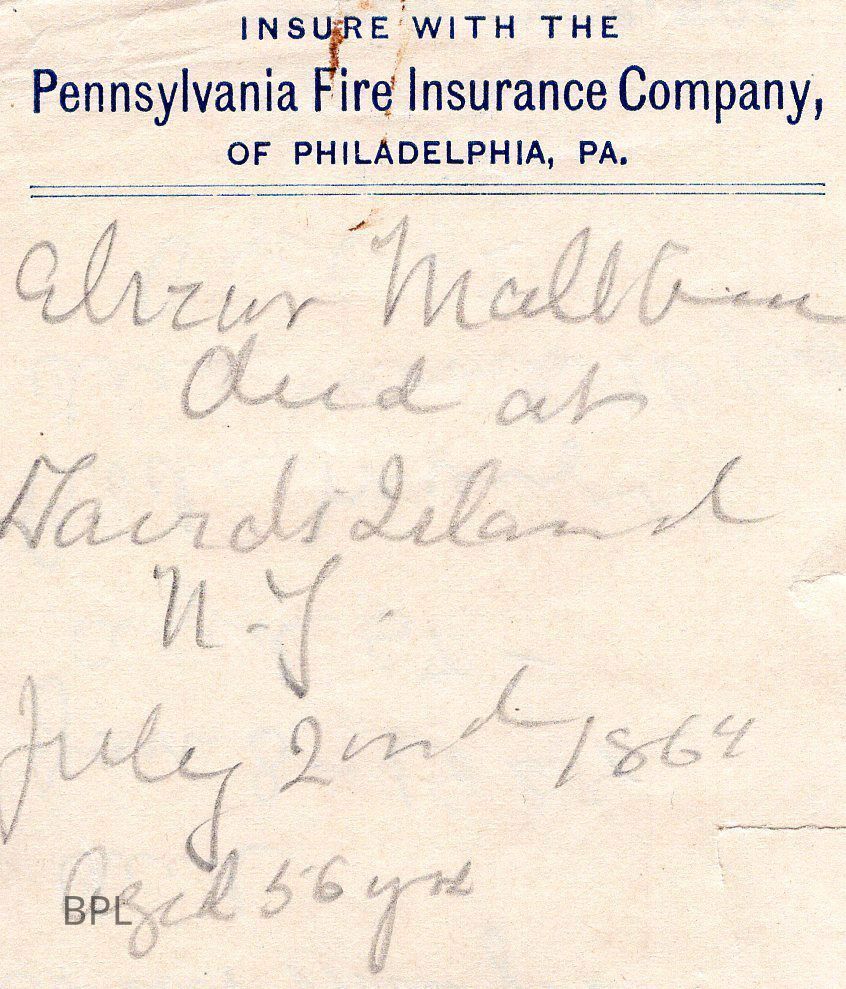 INSURE WITH THE
Pennsylvania Fire Insurance Company,
OF PHILADELPHIA, PA.
Elizur
died at
Davids Island
N-Y.
July 2nd 1864
Aged 56 yrs
BPL